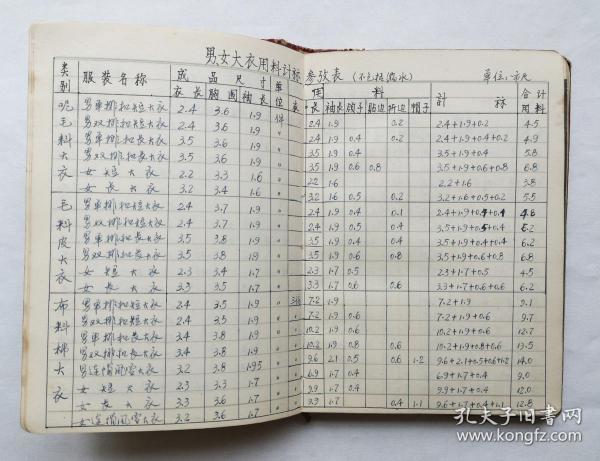 男女大衣用料计称参攷表（不包括漏水） 单位：市尺
类别 服装名称 成品尺寸 单位 用料 计称 合计用料
衣长 胸围 袖长 衣长 袖长 领子 贴边 折边 帽子
呢毛料大衣
男单排扣短大衣 2.4 3.6 1.9 件 2.4 1.9 0.2 2.4+1.9+0.2 4.5
男双排扣短大衣 2.4 3.6 1.9 〃 2.4 1.9 0.4 0.2 2.4+1.9+0.4+0.2 4.9
男单排扣长大衣 3.5 3.6 1.9 〃 3.5 1.9 0.4 3.5+1.9+0.4 5.8
男双排扣长大衣 3.5 3.6 1.9 〃 3.5 1.9 0.6 0.8 3.5+1.9+0.6+0.8 6.8
女短大衣 2.2 3.3 1.6 〃 2.2 1.6 2.2+1.6 3.8
女长大衣 3.2 3.4 1.6 〃 3.2 1.6 0.5 0.2 3.2+1.6+0.5+0.2 5.5
毛料皮大衣
男单排扣短大衣 2.4 3.7 1.9 〃 2.4 1.9 0.4 0.1 2.4+1.9+0.4+0.1 4.8
男双排扣短大衣 2.4 3.7 1.9 〃 2.4 1.9 0.5 0.4 3.5+1.9+0.5+0.4 5.2
男单排扣长大衣 3.5 3.8 1.9 〃 3.5 1.9 0.4 0.4 3.5+1.9+0.4+0.4 6.2
男双排扣长大衣 3.5 3.8 1.9 〃 3.5 1.9 0.6 0.8 3.5+1.9+0.6+0.8 6.8
女短大衣 2.3 3.4 1.7 〃 2.3 1.7 0.5 2.3+1.7+0.5 4.5
女长大衣 3.3 3.5 1.7 〃 3.3 1.7 0.6 0.6 3.3+1.7+0.6+0.6 6.2
布料棉大衣
男单排扣短大衣 2.4 3.5 1.9 〃 7.2 1.9 7.2+1.9 9.1
男双排扣短大衣 2.4 3.5 1.9 〃 7.2 1.9 0.6 7.2+1.9+0.6 9.7
男单排扣长大衣 3.4 3.8 1.9 〃 10.2 1.9 0.6 10.2+1.9+0.6 12.7
男双排扣长大衣 3.4 3.8 1.9 〃 10.2 1.9 0.8 0.6 10.2+1.9+0.8+0.6 13.5
男连帽风雪大衣 3.2 3.8 1.95 〃 9.6 2.1 0.5 0.6 1.2 9.6+2.1+0.5+0.6+1.2 14.0
女短大衣 2.3 3.3 1.7 〃 6.9 1.7 0.4 6.9+1.7+0.4 9.0
女长大衣 3.3 3.6 1.7 〃 9.9 1.7 0.4 9.9+1.7+0.4 12.0
女连帽风雪大衣 3.2 3.6 1.7 〃 1.7 0.4 1.1 9.6+1.7+0.4+1.1 12.8
孔夫子旧书网
www.kongfz.com